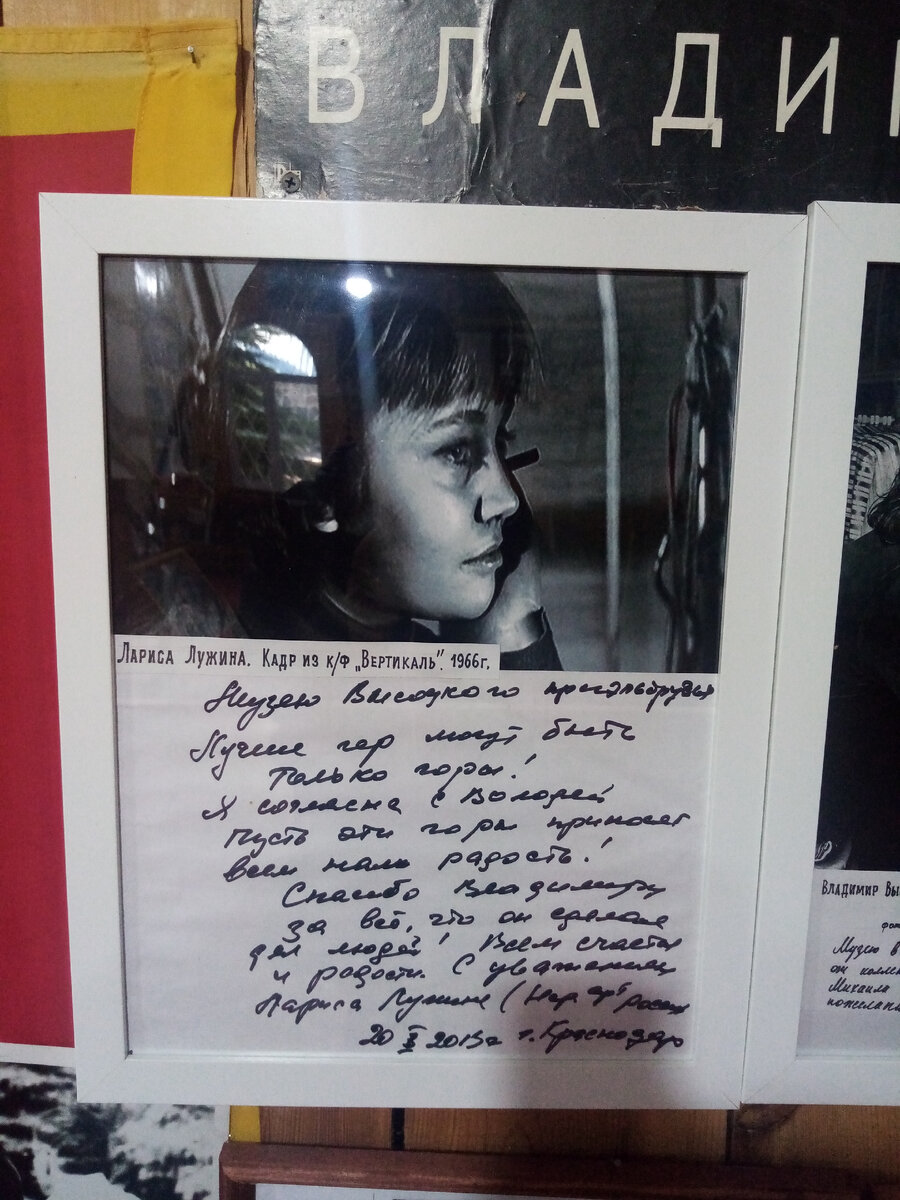 ВЛАДИ
ЛАРИСА ЛУЖИНА. КАДР ИЗ К/Ф „ВЕРТИКАЛЬ". 1966г.
Музею Высоцкого приэльбрусья
Лучше гор могут быть
только горы!
Я согласна с Володей
пусть эти горы приносят
всем нам радость!
Спасибо Владимиру
за всё, что он сделал
для людей! Всем счастья
и радости. С уважением
Лариса Лужина (Нар. арт. России
20 X 2013г г. Краснодар
ВЛАДИМИР ВЫ
фот
Музею в
он колле
Михаила
пожелан